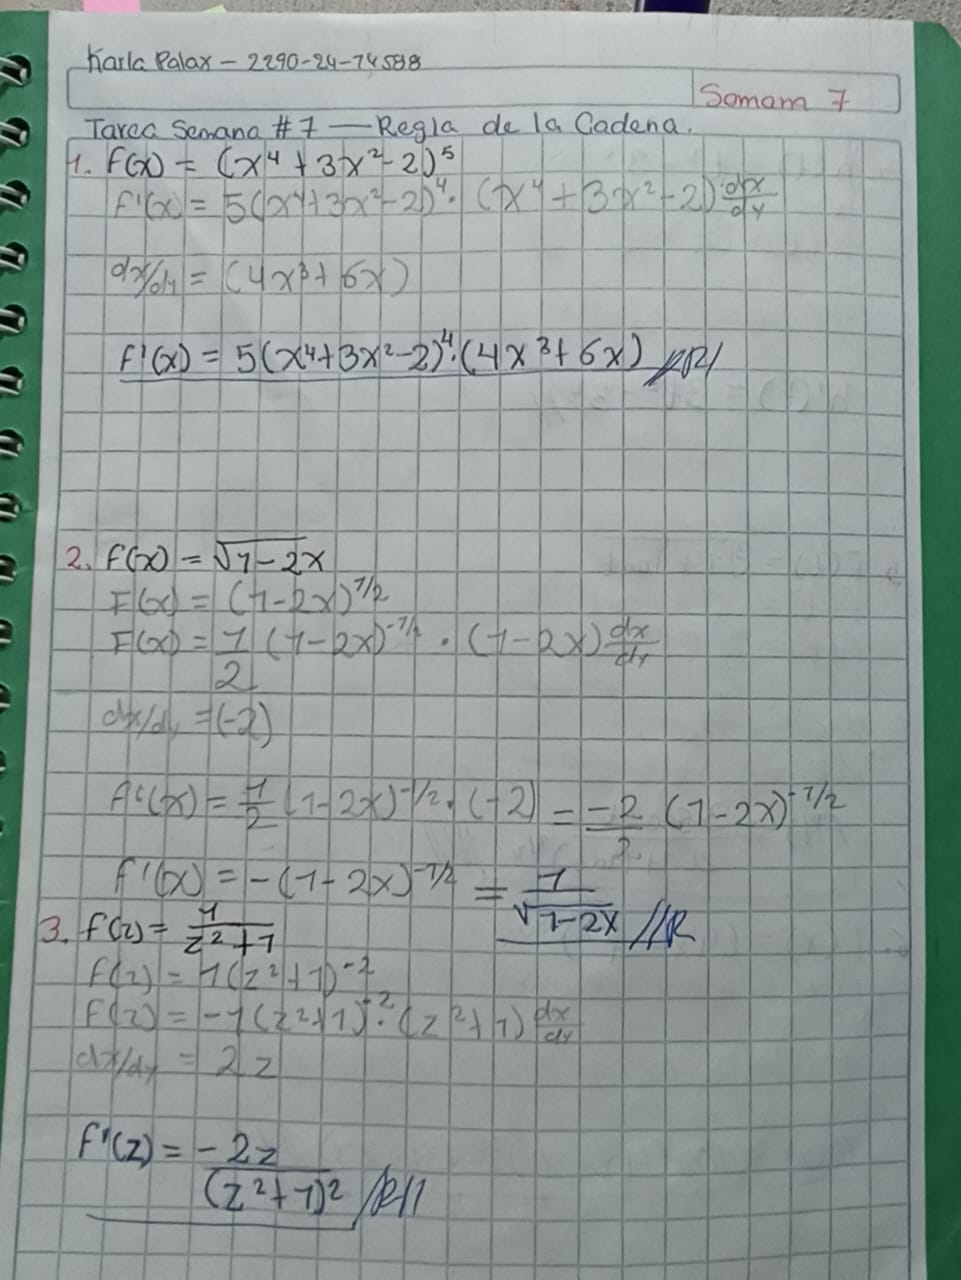 Karla Palax - 2290-24-14588
Semana 7
Tarea Semana #7 — Regla de la Cadena.
1. F(x) = (x⁴ + 3x² - 2)⁵
F'(x) = 5(x⁴+3x²-2)⁴ · (x⁴ + 3x² - 2) dx/dy
dx/dy = (4x³ + 6x)
F'(x) = 5(x⁴+3x²-2)⁴ · (4x³ + 6x) //R//
2. F(x) = √1-2x
F(x) = (1-2x)^1/2
F(x) = 1/2 (1-2x)^-1/2 · (1-2x) dx/dy
dx/dy = (-2)
F'(x) = 1/2 (1-2x)^-1/2 · (-2) = -2/2 (1-2x)^-1/2
F'(x) = -(1-2x)^-1/2 = 1/√1-2x //R
3. F(z) = 1/z²+1
F(z) = 1(z²+1)^-2
F(z) = -1(z²+1)^-2 · (z²+1) dx/dy
dx/dy = 2z
F'(z) = -2z/(z²+1)² /R//